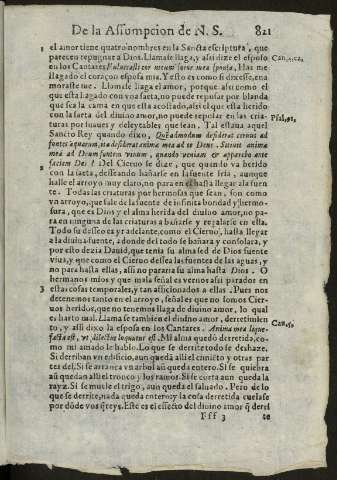 De la Assumpcion de N. S. 821
1 el amor tiene quatro nombres en la Sancta escriptura, que
parecen repugnar a Dios. Llamase llaga, y assi dize el esposo Cantica.
en los Cantares. Vulnerasti cor meum soror mea sponsa, Has me
llagado el coraçon esposa mia. Y esto es como si dixesse, ena
moraste me. Llamase llaga el amor, porque assi como el
que esta llagado con vna saeta, no puede reposar por blanda
que sea la cama en que esta acostado, assi el que esta herido
con la saeta del diuino amor, no puede reposar en las cria-
turas por suaues y deleytables que sean. Tal estaua aquel Psal.
Sancto Rey quando dixo, Quẽ admodum desiderat ceruus ad
fontes aquarum, ita desiderat anima mea ad te Deus. Sitiuit anima
mea ad Deum fontem viuum, quando veniam & apparebo ante
faciem Dei? Del Cieruo se dize, que quando va herido
con la saeta, desseando bañarse en la fuente fria, aunque
halle el arroyo muy claro, no para en el hasta llegar ala fuen
te. Todas las criaturas por hermosas que sean, son como
vn arroyo, que sale de la fuente de infinita bondad y hermo-
sura, que es Dios y el alma herida del diuino amor, no pa-
ra en ninguna de las criaturas a bañarse y regalarse en ella.
Todo su desseo es yr adelante, como el Cieruo, hasta llegar
a la diuina fuente, a donde del todo se bañara y consolara, y
por esto dezia Dauid, que tenia su alma sed de Dios fuente
viua, y que como el Cieruo dessea las fuentes de las aguas, y
no para hasta ellas, assi no parara su alma hasta Dios. O
hermanos mios y que mala señal es vernos assi parados en
3 estas cosas temporales, y tan afficionados a ellas. Pues nos
detenemos tanto en el arroyo, señal es que no somos Cier-
uos heridos, que no tenemos llaga de diuino amor, lo qual
es harto mal. Llamase tambien el diuino amor, derretimien
to, y assi dixo la esposa en los Cantares. Anima mea lique-
facta est, vt dilectus loquutus est. Mi alma quedò derretida, co-
mo mi amado le hablo. Lo que se derrite todo se deshaze.
Si derriban vn edificio, aun queda alli el cimiẽto y otras par
tes del. Si se arranca vn arbol aũ queda entero. Si se quiebra
aũ quedan alli el tronco y los ramos. Si se corta aun queda la
rayz. Si se muele el trigo, aun queda el saluado. Pero de lo
que se derrite, nada queda entero y la cosa derretida cuelase
por dõde vos q̃reys. Este es el effecto del diuino amor q̃ derri
Fff 3 te